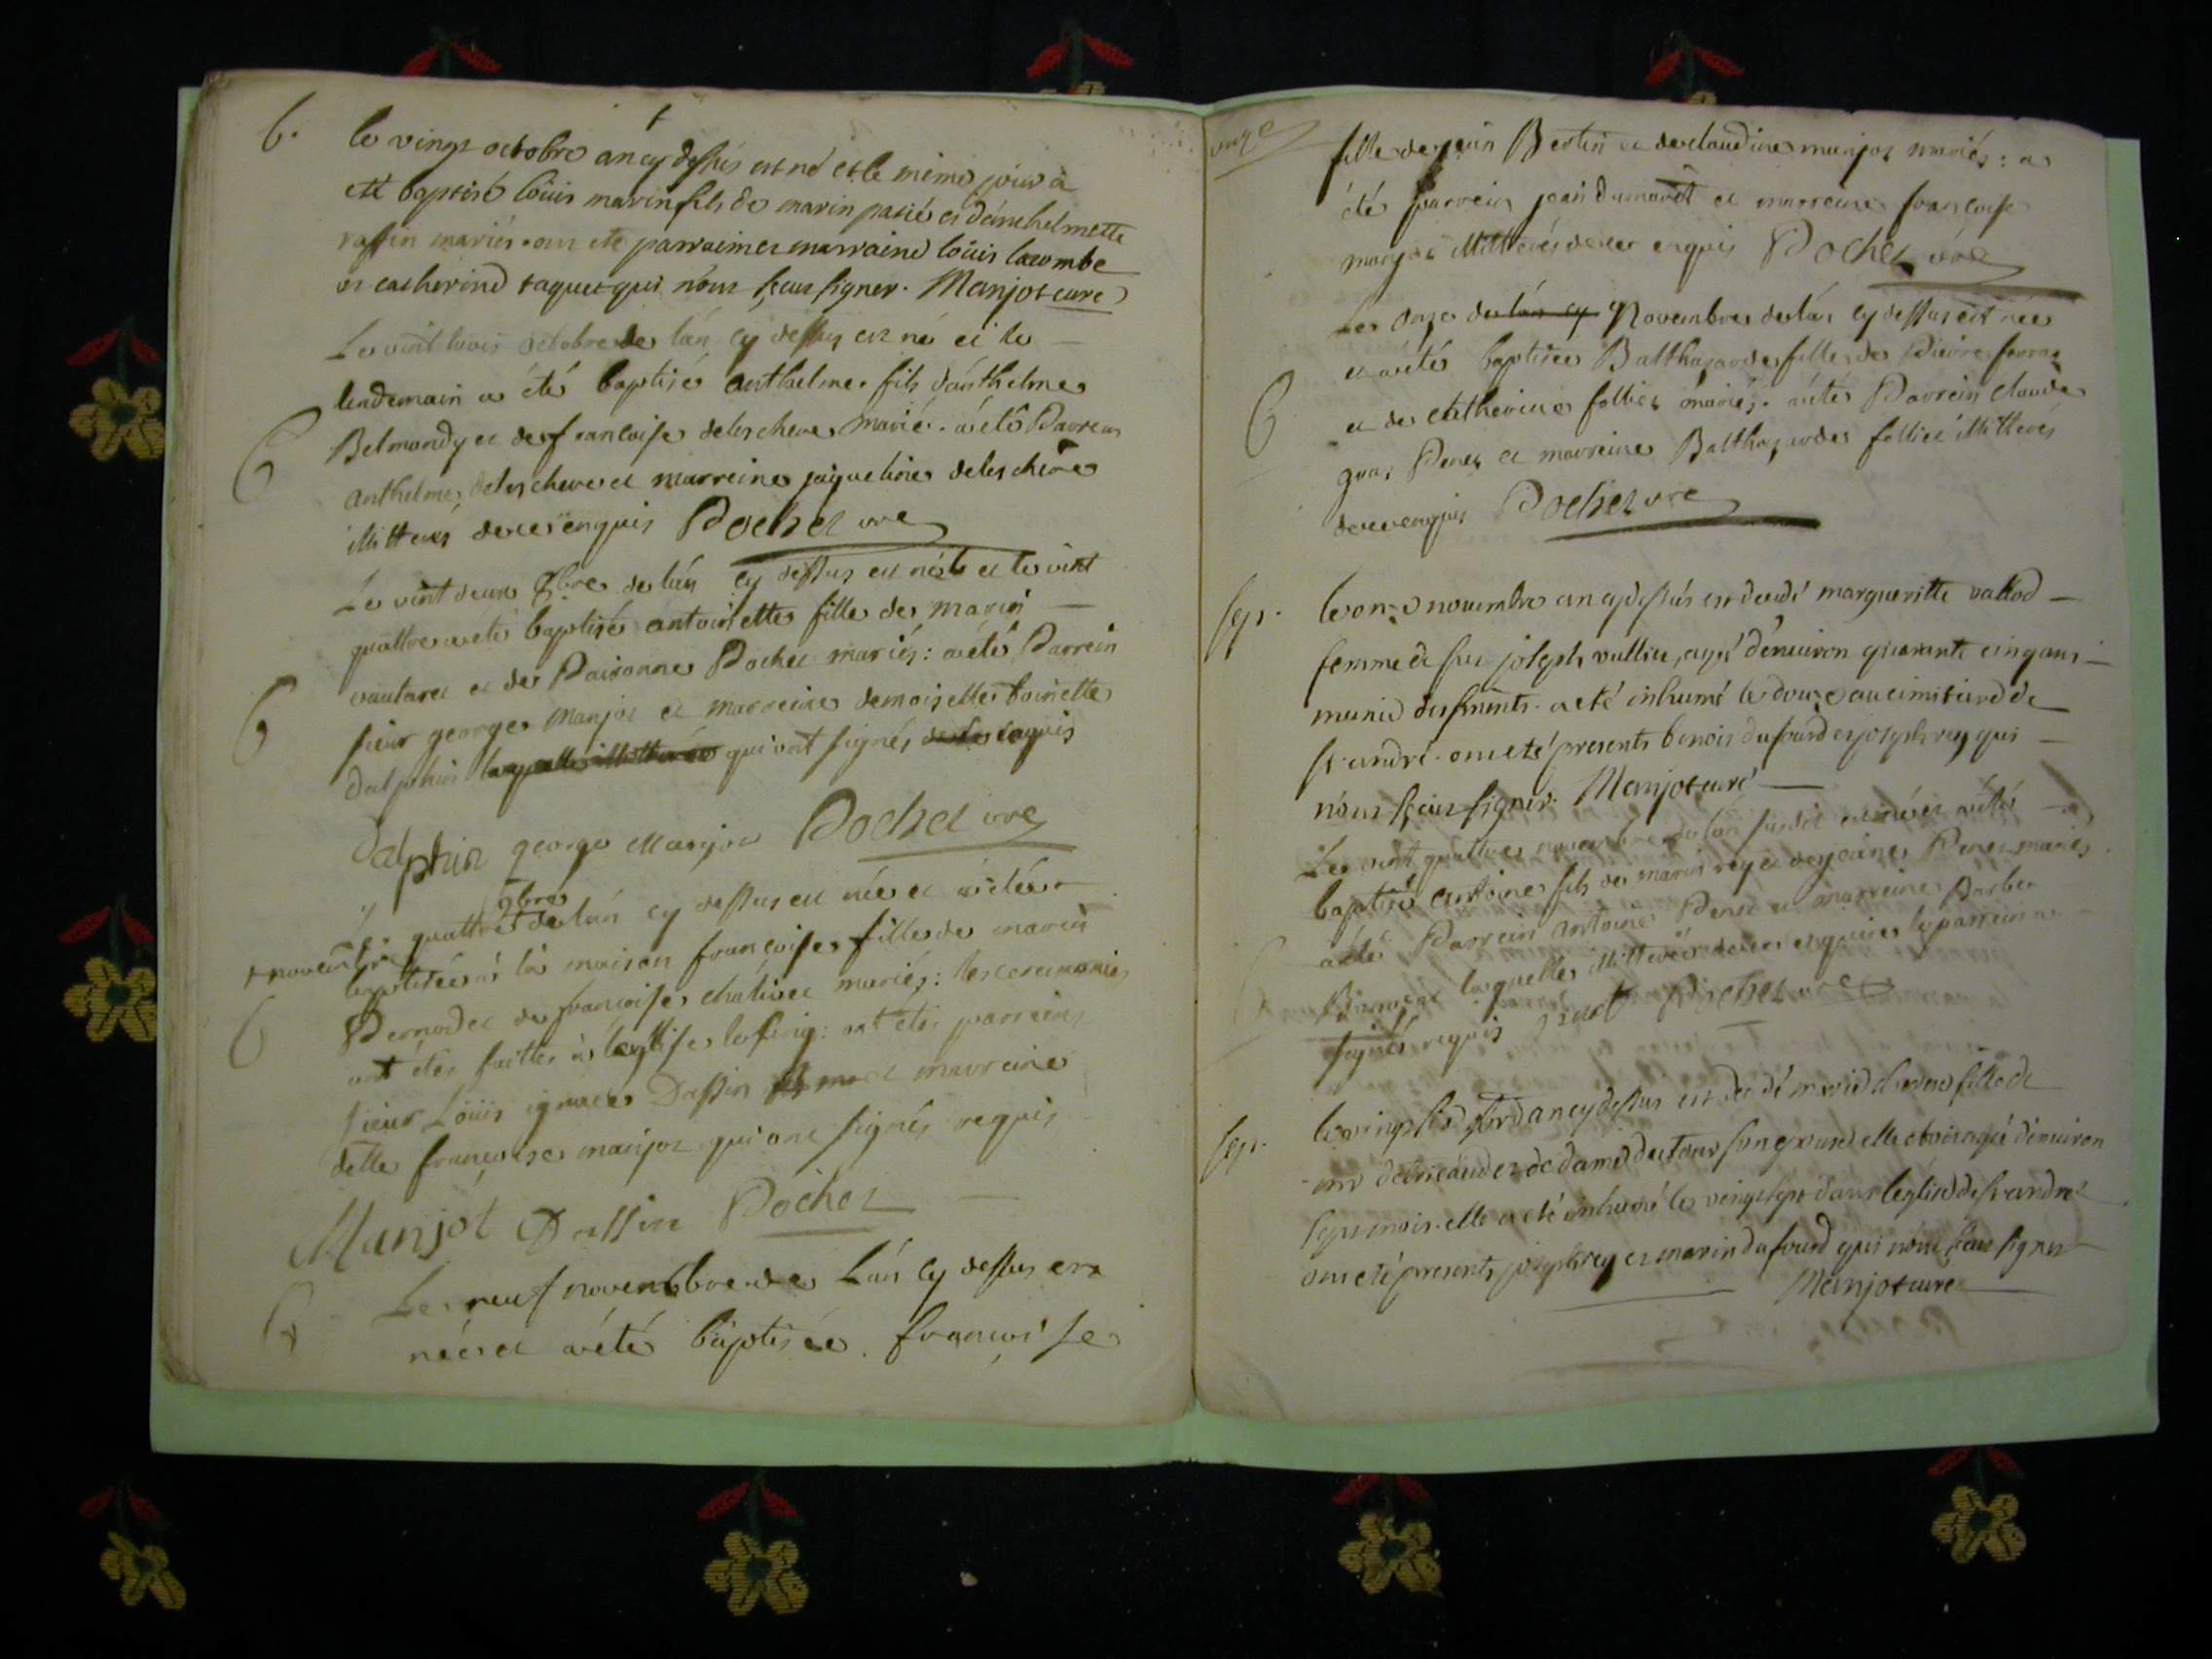 b. le vingt octobre an cy dessus est né et le mème jour a
été baptisé loüis marin fils de marin parié et d'anthelmette
rassin mariés. ont ete parrain et marraine loüis lacombe
et catherine taquet qui n'ont sçeus signer. Manjot curé
Le vint trois octobre de lán cy dessus est né et le
lendemain a été baptisé anthelme fils dánthelme
Belmondy et de francoise delescheve mariés. a été Parrein
anthelme delescheve et marreine jaqueline delescheve
illitterés de ce enquis Pochet vre
Le vint deux 8bre de lán cy dessus est née et le vint
quattre a eté baptisé antoinette fille de marin
vautaret et de Paironne Pochet mariés: a été Parrein
sieur george manjot et marreine demoiselle toinette
dalphin laquelle illitterée qui ont signés de ce requis
Dalphin george Manjot Pochet vre
Le quattre 9bre de lán cy dessus est née et a étée
+ novembre
b baptisée à la maison françoise fille de marin
Pernodet de françoise chativet mariés: les ceremonies
ont étés faittes à l'egllise le ont étés parreins
sieur Loüis ignace Dassin et marreine
delle françoise manjot qui ont signés requis
Manjot Dassin Pochet
Le neuf novembre de Lán cy dessus est
née et a été baptisée françoise
onze
fille de jean Bertin et de claudine manjot mariés: a
été parrein jean dumarest et marreine françoise
manjot illitterés de ce enquis Pochet vre
Le onze de lán cy Novembre de lán cy dessus est née
et a été baptisée Balthazarde fille de Pierre ferraz
et de Catherine folliet mariés. a été Parrein claude
gros Perret et marreine Balthazarde folliet illitterés
de ce enquis Pochet vre
sep. le onze nouembre an cy dessus est decedé margueritte vallod
femme de feu joseph vulliet, agé d'enuiron quarante cinq ans
munie des srments. a eté inhumé le douze au cimitiere de
st andré. ont eté presents benois dufourd et joseph rey qui
n'ont sçeus signer. Manjot curé
Le vint quattre novembre de lán susdit est né et a été
baptisé antoine fils de marin rey et de jeane Perret mariés
a été Parrein antoine Perret et marreine Barbe
laquelle illitterée de ce enquise le parrein a
signé requis Pochet vre
sep. le vingt six 9bre an cy dessus est decedé marie fille de
et de dame dutour son epouse elle etoit agé d'enuiron
sept mois. elle a eté inhumé le vingt sept dans leglise de st andré
ont eté presents joseph rey et marin dufourd qui n'ont sceus signer
Manjot curé